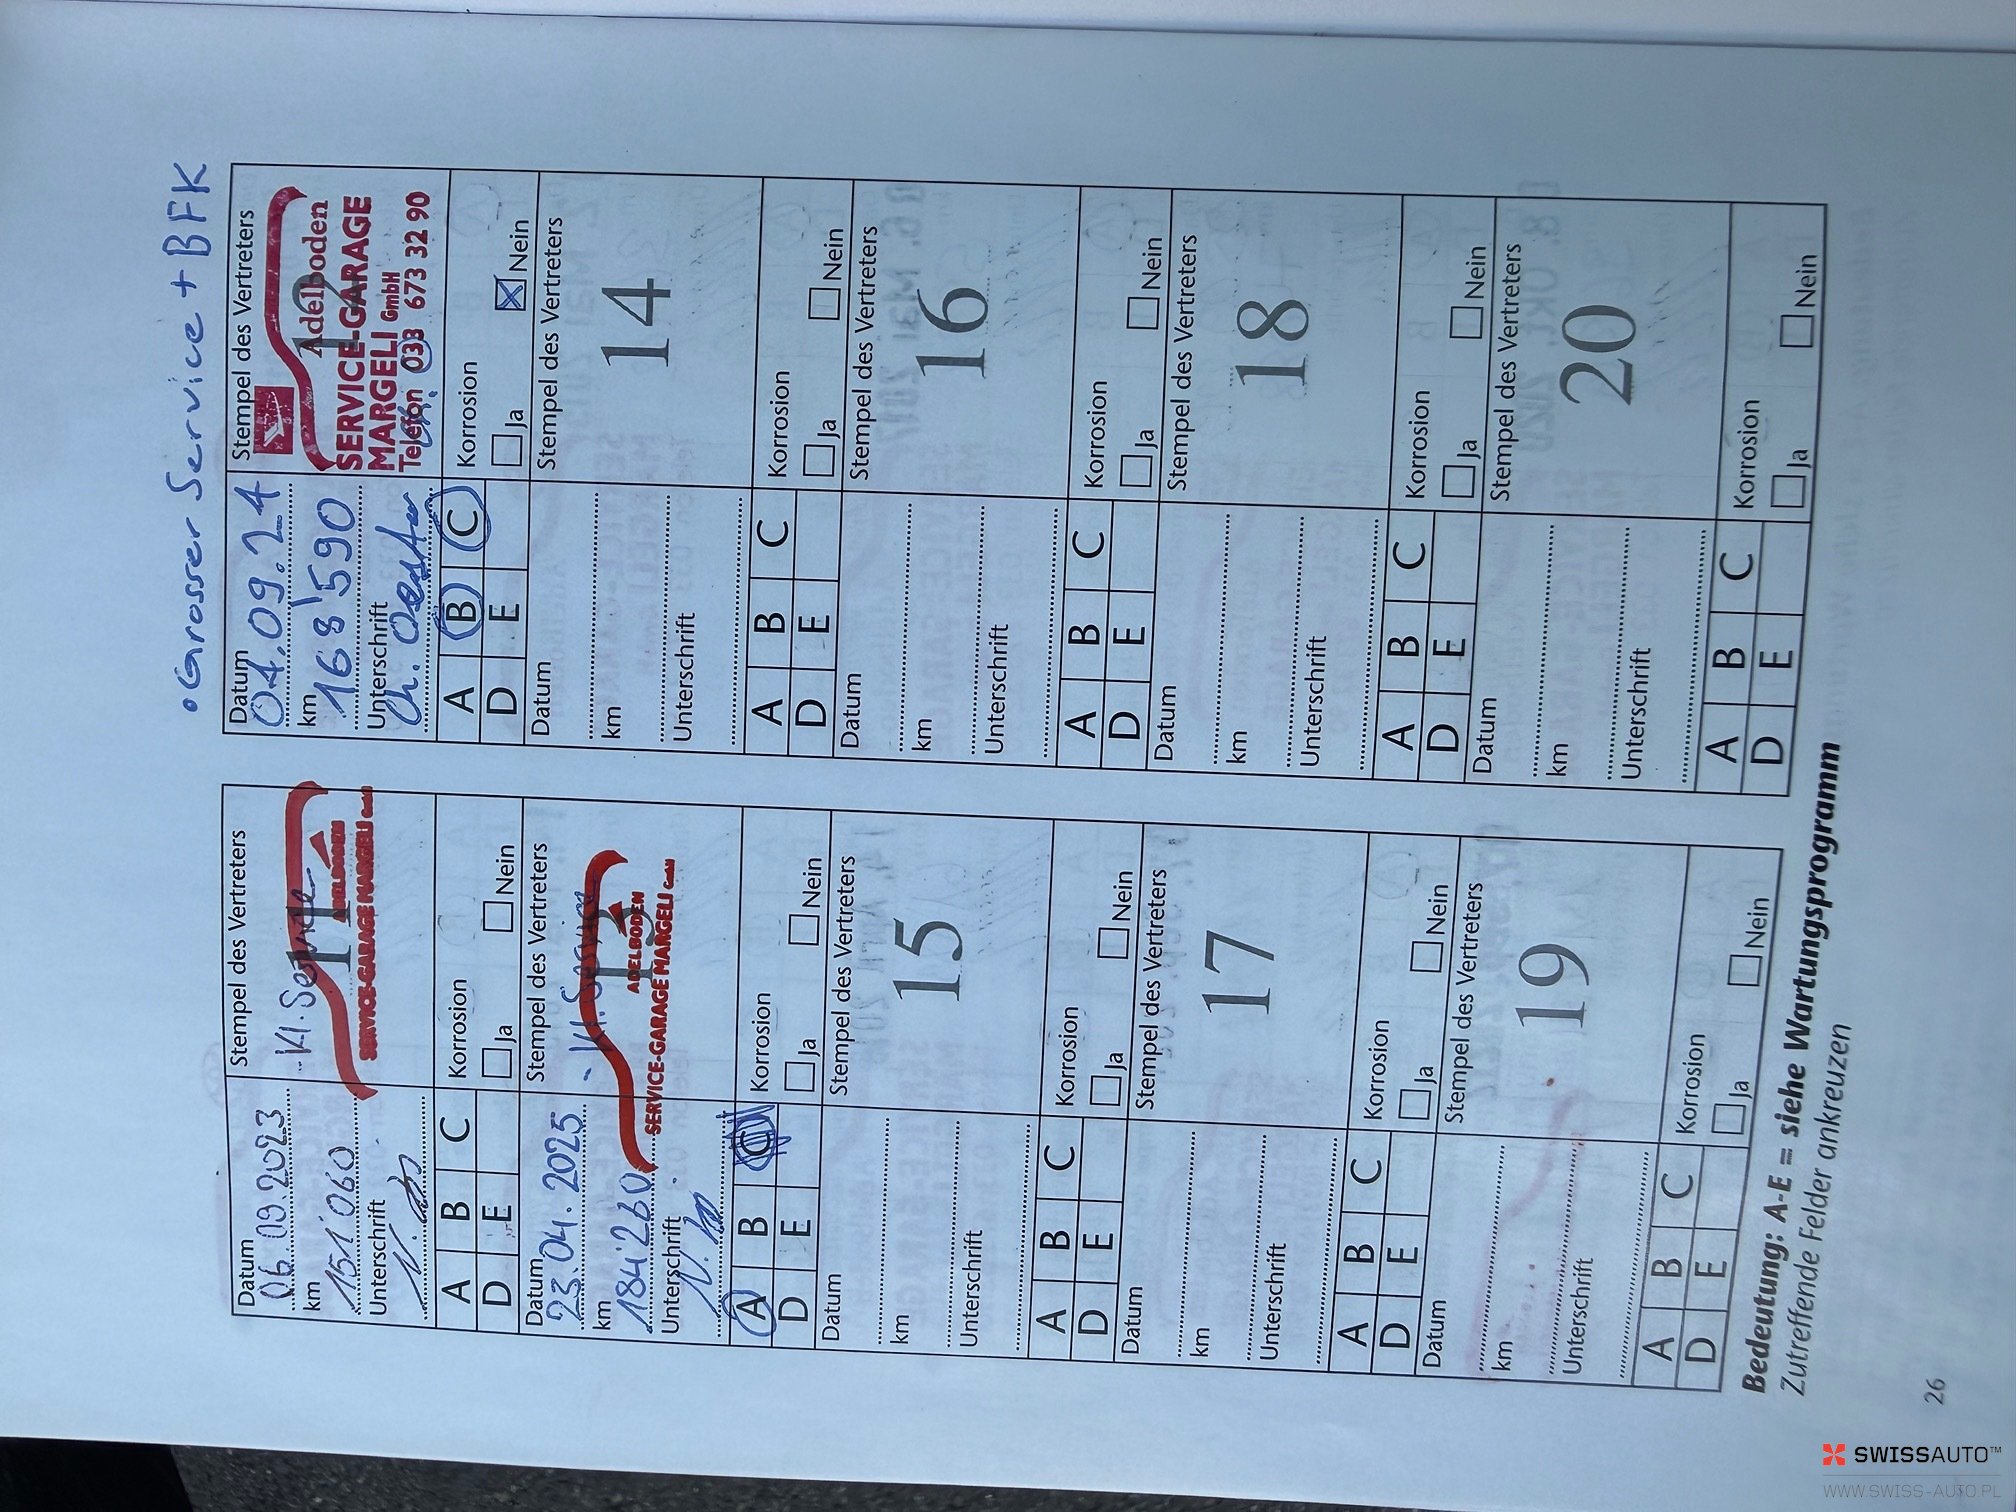 • Grosser Service + BFK
Datum
06.09.2023
km
151'060
Unterschrift
Stempel des Vertreters
Kl. Service
11
ADELBODEN
SERVICE-GARAGE MARGELI GmbH
A B C
D E
Korrosion
Ja Nein
Datum
04.09.24
km
168'590
Unterschrift
Stempel des Vertreters
12
Adelboden
SERVICE-GARAGE
MARGELI GmbH
Telefon 033 673 32 90
A B C
D E
Korrosion
Ja Nein
Datum
23.04.2025
km
184'260
Unterschrift
Stempel des Vertreters
- Kl. Service
13
ADELBODEN
SERVICE-GARAGE MARGELI GmbH
A B C
D E
Korrosion
Ja Nein
Datum
km
Unterschrift
Stempel des Vertreters
14
A B C
D E
Korrosion
Ja Nein
Datum
km
Unterschrift
Stempel des Vertreters
15
A B C
D E
Korrosion
Ja Nein
Datum
km
Unterschrift
Stempel des Vertreters
16
A B C
D E
Korrosion
Ja Nein
Datum
km
Unterschrift
Stempel des Vertreters
17
A B C
D E
Korrosion
Ja Nein
Datum
km
Unterschrift
Stempel des Vertreters
18
A B C
D E
Korrosion
Ja Nein
Datum
km
Unterschrift
Stempel des Vertreters
19
A B C
D E
Korrosion
Ja Nein
Datum
km
Unterschrift
Stempel des Vertreters
20
A B C
D E
Korrosion
Ja Nein
Bedeutung: A-E = siehe Wartungsprogramm
Zutreffende Felder ankreuzen
26
SWISSAUTO™
WWW.SWISS-AUTO.PL